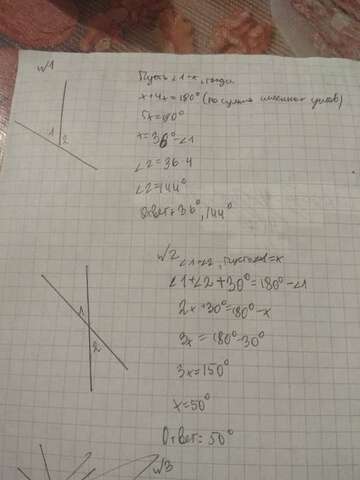 №1
Пусть ∠1-x, тогда
x+4x=180° (по сумме смежных углов)
5x=180°
x=36°-∠1
∠2=36·4
∠2=144°
Ответ: 36°, 144°
1 2
№2
∠1=∠2, Пусть ∠1=x
∠1+∠2+30°=180°-∠1
2x+30°=180°-x
3x=180°-30°
3x=150°
x=50°
Ответ: 50°
1
2
№3